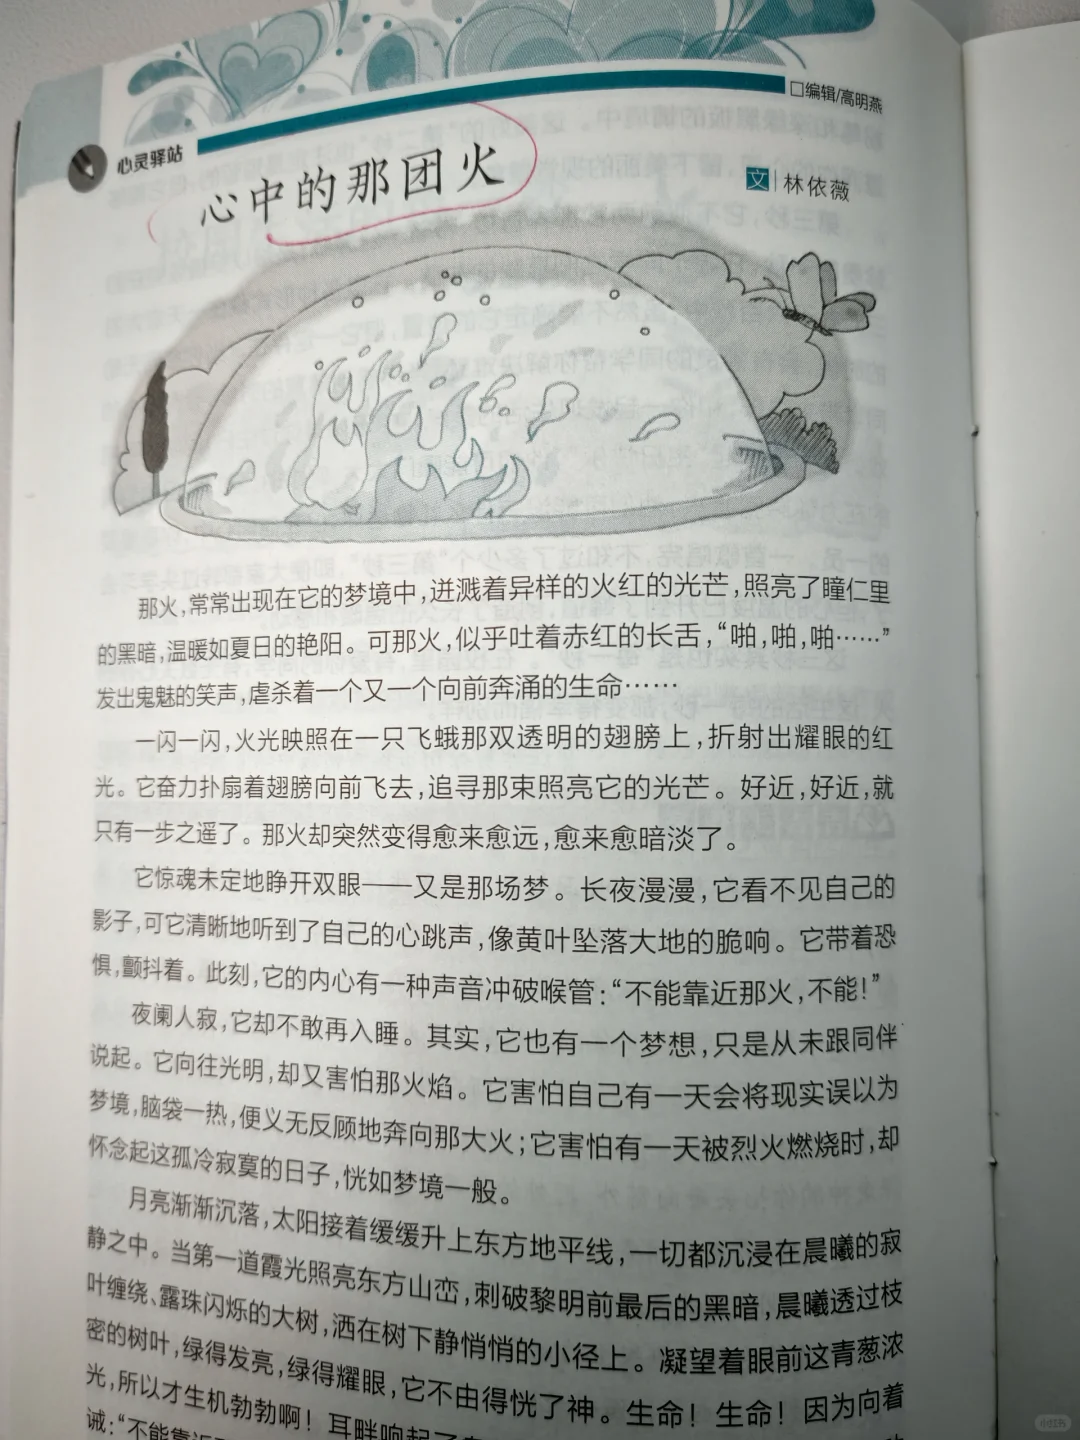 □编辑/高明燕
心灵驿站
心中的那团火
文 林依薇
那火,常常出现在它的梦境中,迸溅着异样的火红的光芒,照亮了瞳仁里
的黑暗,温暖如夏日的艳阳。可那火,似乎吐着赤红的长舌,“啪,啪,啪……”
发出鬼魅的笑声,虐杀着一个又一个向前奔涌的生命……
一闪一闪,火光映照在一只飞蛾那双透明的翅膀上,折射出耀眼的红
光。它奋力扑扇着翅膀向前飞去,追寻那束照亮它的光芒。好近,好近,就
只有一步之遥了。那火却突然变得愈来愈远,愈来愈暗淡了。
它惊魂未定地睁开双眼——又是那场梦。长夜漫漫,它看不见自己的
影子,可它清晰地听到了自己的心跳声,像黄叶坠落大地的脆响。它带着恐
惧,颤抖着。此刻,它的内心有一种声音冲破喉管:“不能靠近那火,不能!”
夜阑人寂,它却不敢再入睡。其实,它也有一个梦想,只是从未跟同伴
说起。它向往光明,却又害怕那火焰。它害怕自己有一天会将现实误以为
梦境,脑袋一热,便义无反顾地奔向那大火;它害怕有一天被烈火燃烧时,却
怀念起这孤冷寂寞的日子,恍如梦境一般。
月亮渐渐沉落,太阳接着缓缓升上东方地平线,一切都沉浸在晨曦的寂
静之中。当第一道霞光照亮东方山峦,刺破黎明前最后的黑暗,晨曦透过枝
叶缠绕、露珠闪烁的大树,洒在树下静悄悄的小径上。凝望着眼前这青葱浓
密的树叶,绿得发亮,绿得耀眼,它不由得恍了神。生命!生命!因为向着
光,所以才生机勃勃啊!耳畔响起了
诫:“不能靠近
小红书